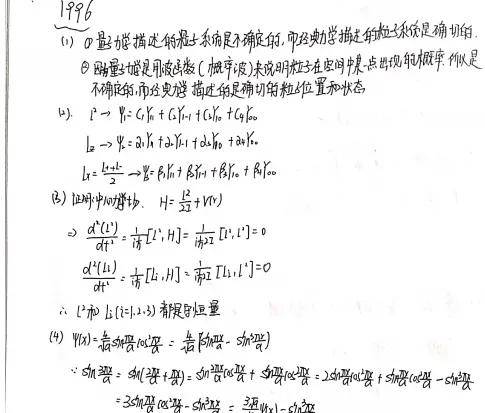 1996
(1) ①量子力学描述的粒子系统是不确定的,而经典力学描述的粒子系统是确切的.
②因为量子力学是用波函数(概率波)来说明粒子在空间中某一点出现的概率.所以是
不确定的,而经典力学描述的是确切的粒子位置和状态
(2). l² → ψ₁=C₁Y₁₁+C₂Y₁₋₁+C₃Y₁₀+C₄Y₀₀
L_z → ψ₂=α₁Y₁₁+α₂Y₁₋₁+α₃Y₁₀+α₄Y₀₀
Lx=(L₊+L₋)/2 → ψ₃=β₁Y₁₁+β₂Y₁₋₁+β₃Y₁₀+β₄Y₀₀
(3) 证明:中心力场. H=l²/2I+V(r)
⇒ d²(l²)/dt²=1/iħ[l²,H]=1/iħ2I[l²,l²]=0
d²(Li)/dt²=1/iħ[Li,H]=1/iħ2I[Li,l²]=0
∴ l²和Li(i=1,2,3)都是守恒量
(4) ψ(x)=4/√a sin πx/a cos² πx/a = 4/√a(sin πx/a - sin³ πx/a)
∵ sin 3πx/a = sin(2πx/a+πx/a)=sin 2πx/a cos πx/a+sin πx/a cos 2πx/a=2sin πx/a cos² πx/a+sin πx/a cos² πx/a-sin³ πx/a
=3sin πx/a cos² πx/a-sin³ πx/a = ψ(x)-sin³ πx/a